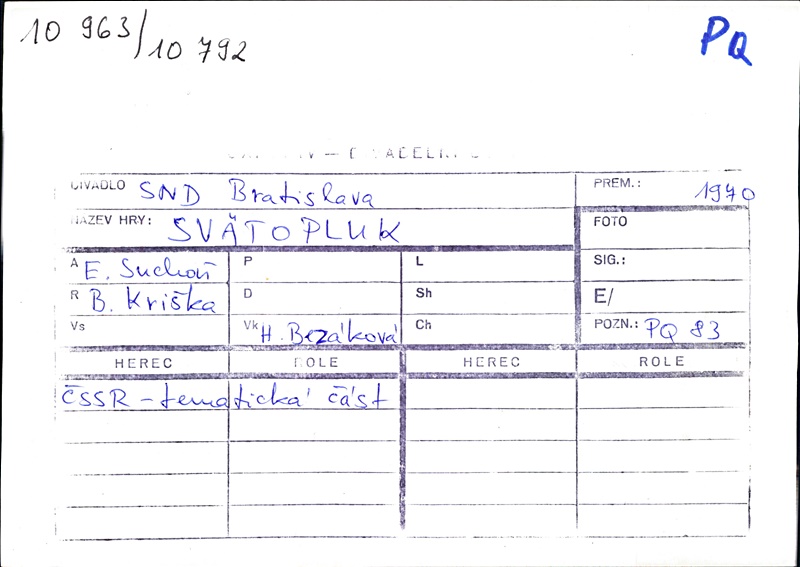 10 963/10 792
PQ
DIVADLO SND Bratislava PREM.: 1970
NÁZEV HRY: SVÄTOPLUK FOTO
A E. Suchoň P L SIG.:
R B. Kriška D Sh E/
Vs Vk H. Bezáková Ch POZN.: PQ 83
HEREC ROLE HEREC ROLE
ČSSR - tematická část